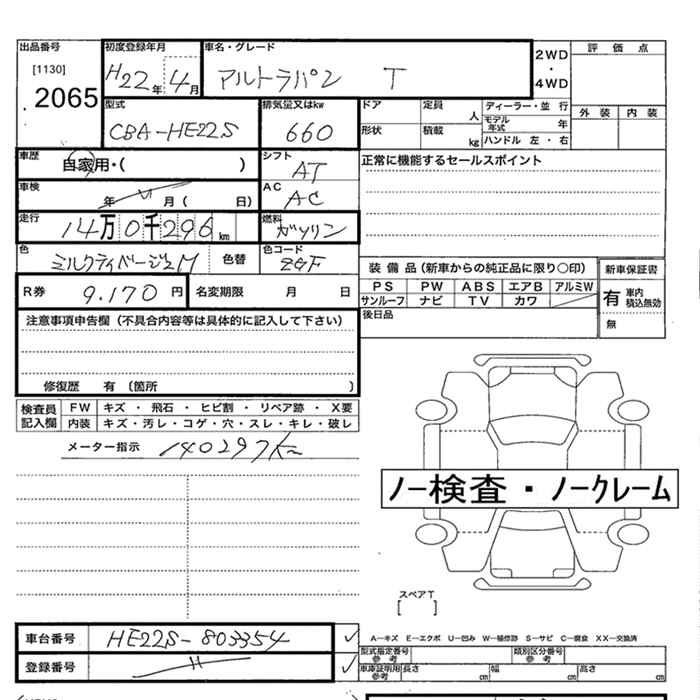 出品番号 初度登録年月 車名・グレード 2WD・4WD 評価点
[1130] 2065 H22年 4月 アルトラパン T 外装 内装
型式 排気量又はkw ドア 定員 人 ディーラー・並行
CBA-HE22S 660 形状 積載 kg モデル年式 年
ハンドル 左・右
車歴 自家用・( ) シフト AT 正常に機能するセールスポイント
車検 年 月( 日) AC AC
走行 14万0千296km 燃料 ガソリン
色 ミルクティベージュM 色替 色コード ZGF
装備品(新車からの純正品に限り○印) 新車保証書
R券 9.170円 名変期限 月 日 PS PW ABS エアB アルミW 有 車内積込無効
サンルーフ ナビ TV カワ
注意事項申告欄(不具合内容等は具体的に記入して下さい) 後日品 無
修復歴 有(箇所 )
検査員記入欄 FW キズ・飛石・ヒビ割・リペア跡・X要
内装 キズ・汚レ・コゲ・穴・スレ・キレ・破レ
メーター指示 140297km
ノー検査・ノークレーム
スペアT
[ ]
車台番号 HE22S-803354 A―キズ E―エクボ U―凹み W―補修跡 S―サビ C―腐食 XX―交換済
型式指定番号参考 類別区分番号参考
登録番号 車庫証明用参考 長さ cm 幅 cm 高さ cm